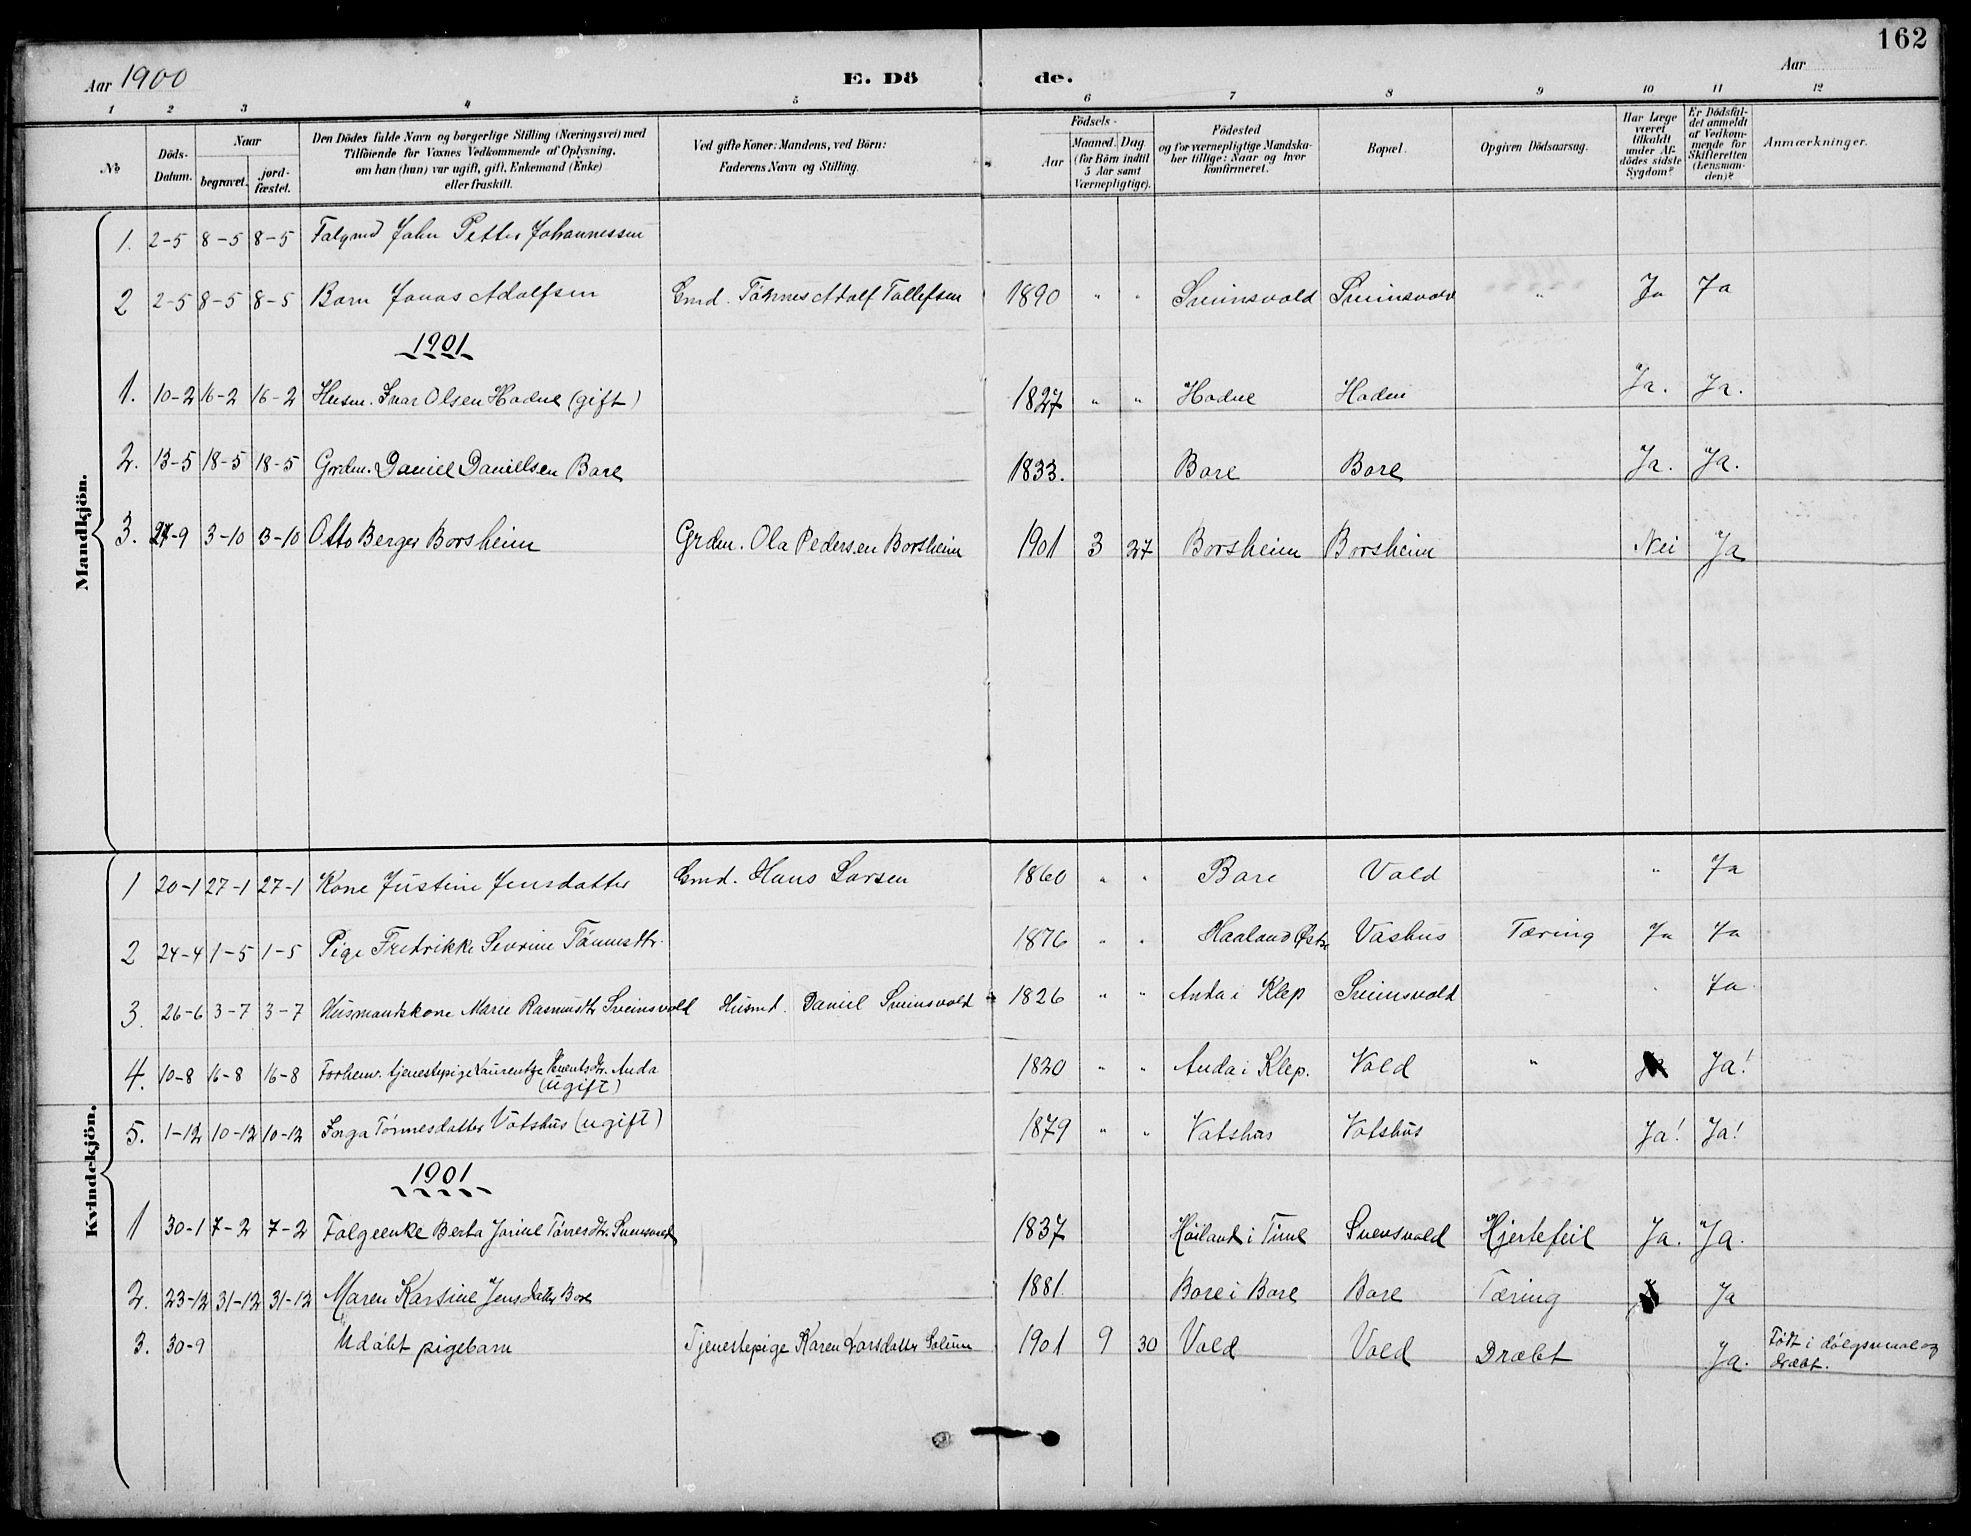 162
Aar 1900 E. Dö de. Aar
1 2 3 4 5 6 7 8 9 10 11 12
No
Döds-Datum.
Naar
begravet.
jord-fæstet.
Den Dödes fulde Navn og borgerlige Stilling (Næringsvei) med
Tilföiende for Voxnes Vedkommende af Oplysning,
om han (hun) var ugift, gift, Enkemand (Enke)
eller fraskilt.
Ved gifte Koner: Mandens, ved Börn:
Faderens Navn og Stilling.
Födsels-
Aar
Maaned. Dag.
(for Börn indtil
5 Aar samt
Værnepligtige).
Födested
og for værnepligtige Mandska-
ber tillige: Naar og hvor
konfirmeret.
Bopæl.
Opgiven Dödsaarsag.
Har Læge
været
tilkaldt
under Af-
dödes sidste
Sygdom?
Er Dödsfal-
det anmeldt
af Vedkom-
mende for
Skifteretten
(Lensman-
den)?
Anmærkninger.
Mandkjön.
1. 2-5 8-5 8-5 Folgmd John Petter Johannessen
2 2-5 8-5 8-5 Barn Jonas Adolfsen Gmd. Tönnes Adolf Tollefsen 1890 " " Sveinsvold Sveinsvold " Ja Ja
1901
1. 10-2 16-2 16-2 Husm. Ivar Olsen Hodne (gift) 1827 " " Hodne Hodne Ja. Ja.
2. 13-5 18-5 18-5 Grdm. Daniel Danielsen Bore 1833. Bore Bore Ja. Ja.
3. 27-9 3-10 3-10 Otto Berger Borsheim Grdm. Ola Pedersen Borsheim 1901 3 27 Borsheim Borsheim Nei Ja
Kvindekjön.
1 20-1 27-1 27-1 Kone Justine Jensdatter Gmd. Hans Larsen 1860 " " Bore Vold " Ja
2 24-4 1-5 1-5 Pige Fredrikke Sevrine Tönnesdtr. 1876 " " Haaland Østre Vashus Tæring Ja Ja
3. 26-6 3-7 3-7 Husmandskone Marie Rasmusdtr Sveinsvold Husmd. Daniel Sveinsvold 1826 " " Anda i Klep Sveinsvold " Ja
4. 10-8 16-8 16-8 Forhenv. tjenestepige Laurentze Anda
(ugift) 1820 " " Anda i Klep. Vold " Ja!
5. 1-12 10-12 10-12 Inga Tönnesdatter Votshus (ugift) 1879 " " Vatshus Votshus Ja! Ja!
1901
1 30-1 7-2 7-2 Folgeenke Berta Jorine Tørresdtr. Svensvold 1837 Høiland i Time Svensvold Hjertefeil Ja. Ja.
2. 23-12 31-12 31-12 Maren Karsine Jensdatter Bore 1881. Bore i Bore Bore Tæring Ja
3. 30-9 Udöbt pigebarn Tjenestepige Karen Larsdatter Solum 1901 9 30 Vold Vold Dræbt Ja. Födt i dölgsmaal og
dræbt.